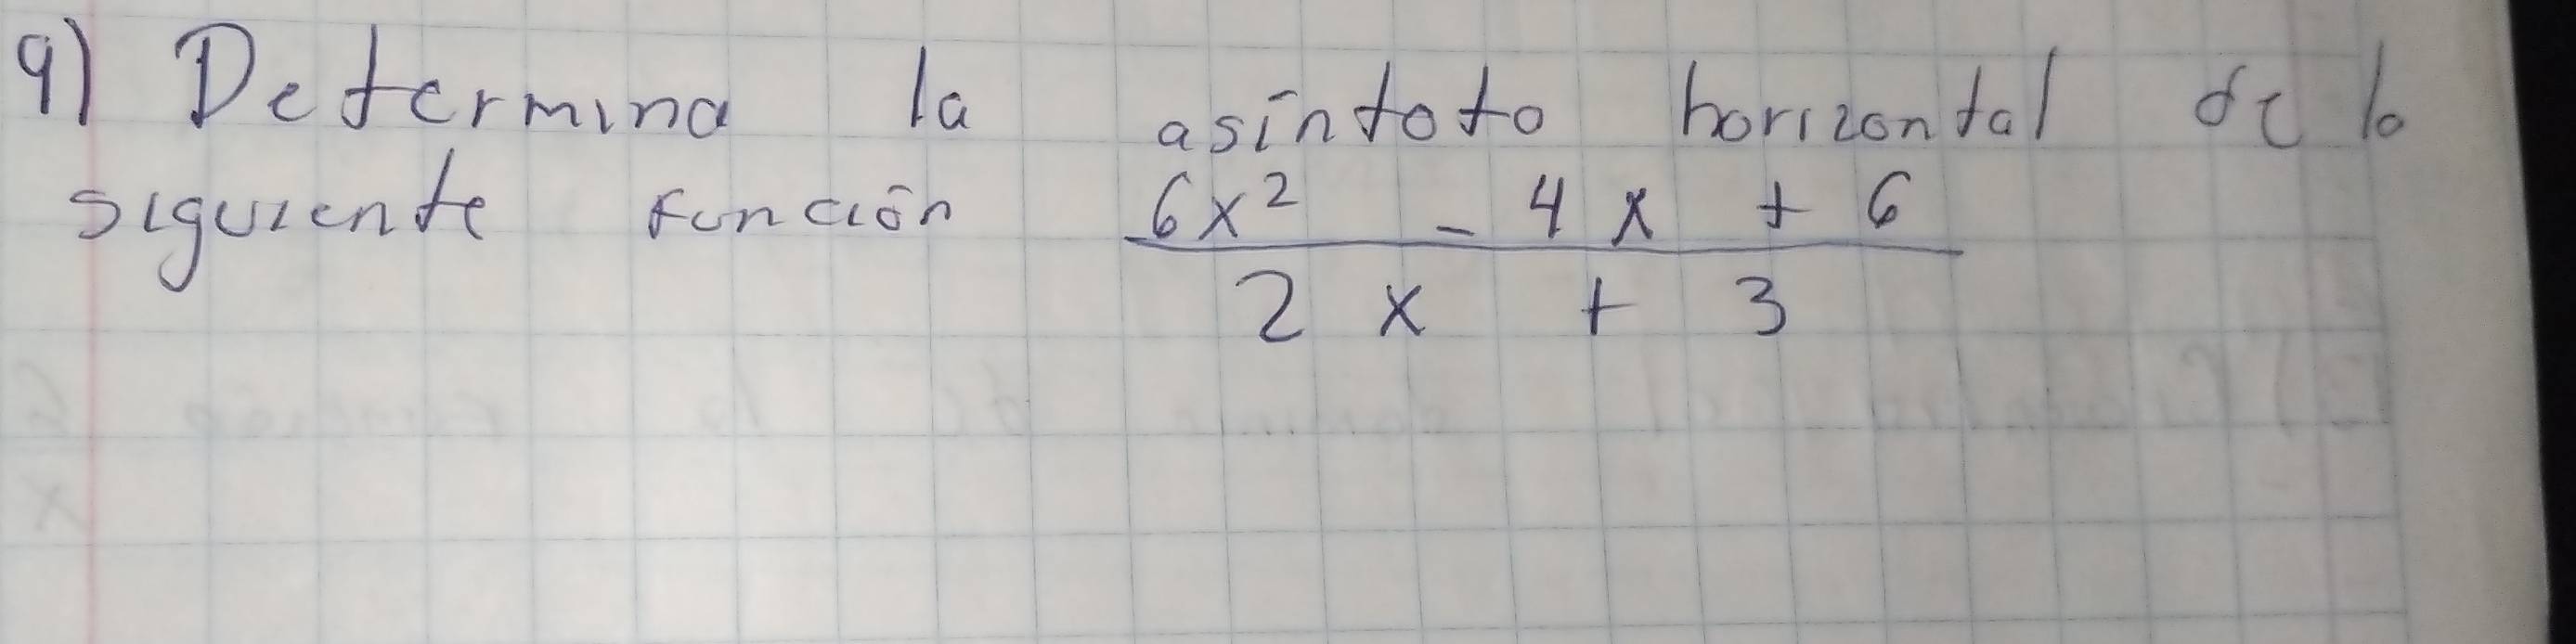 9) Determina la asíntoto horizontal de lo
siguiente función 6x² - 4x + 6
2x + 3